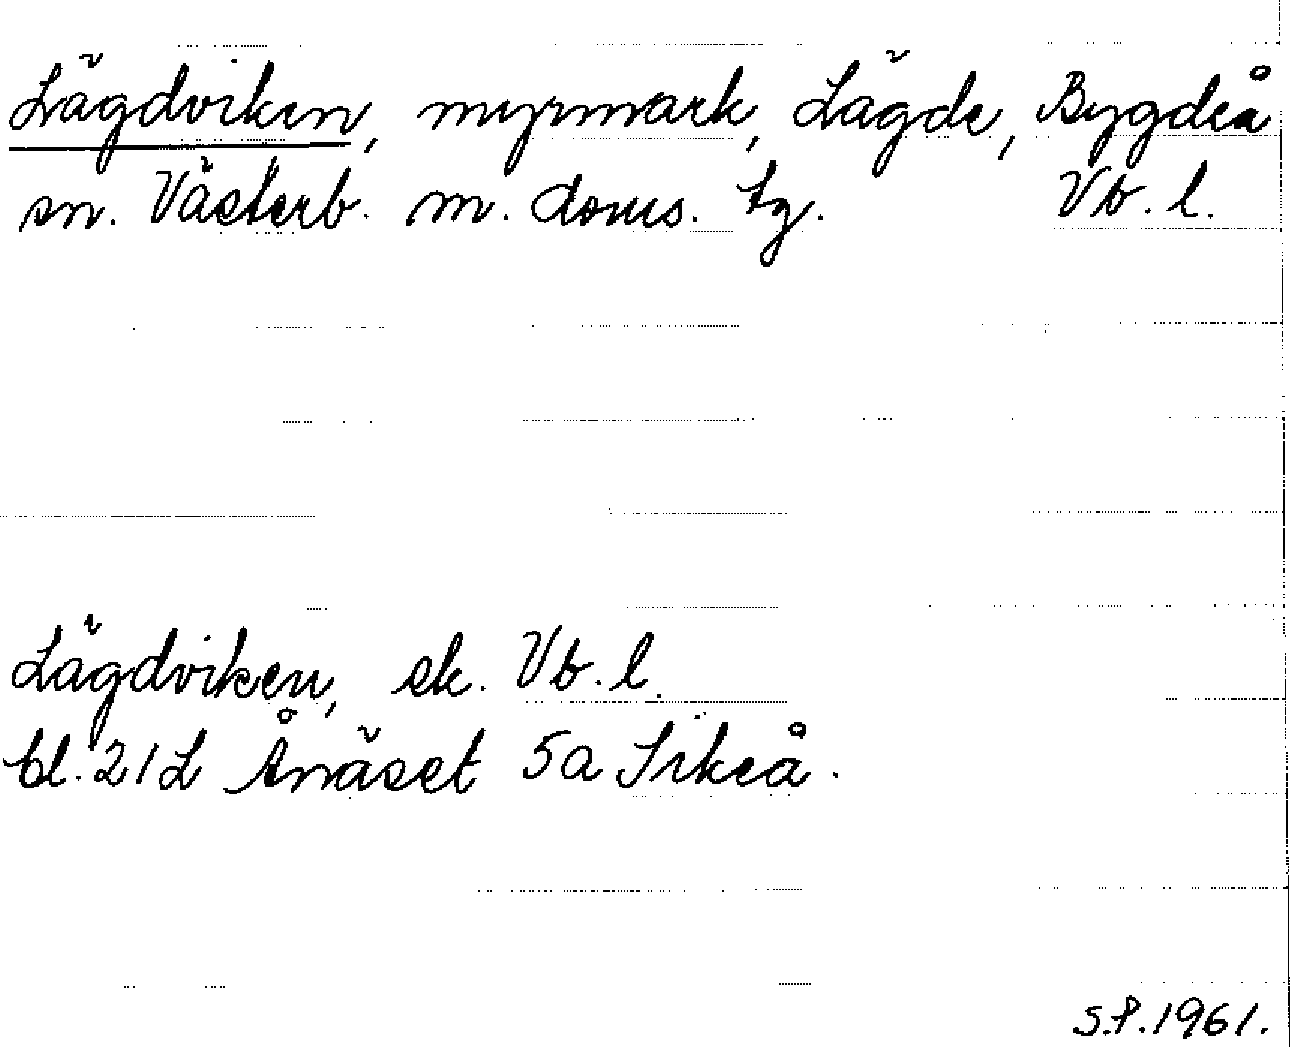 Lägdviken, myrmark, Lägde, Bygdeå
sn. Västerb. m. doms. tg. Vb. l.
Lägdviken, ek. Vb. l.
bl. 21L Ånäset 5a Sikeå.
S.P. 1961.